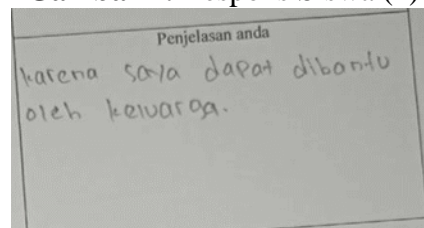 Penjelasan anda
karena saya dapat dibantu
oleh keluarga.